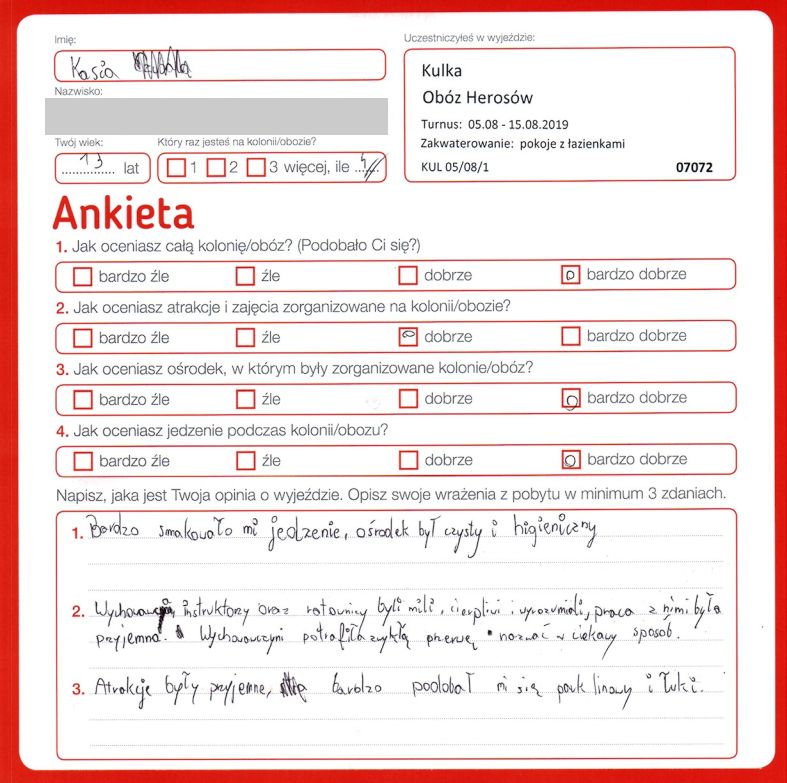 Imię:
Kasia
Nazwisko:
Twój wiek:
13 lat
Który raz jesteś na kolonii/obozie?
1 2 3 więcej, ile 4
Uczestniczyłeś w wyjeździe:
Kulka
Obóz Herosów
Turnus: 05.08 - 15.08.2019
Zakwaterowanie: pokoje z łazienkami
KUL 05/08/1 07072
Ankieta
1. Jak oceniasz całą kolonię/obóz? (Podobało Ci się?)
bardzo źle źle dobrze bardzo dobrze
2. Jak oceniasz atrakcje i zajęcia zorganizowane na kolonii/obozie?
bardzo źle źle dobrze bardzo dobrze
3. Jak oceniasz ośrodek, w którym były zorganizowane kolonie/obóz?
bardzo źle źle dobrze bardzo dobrze
4. Jak oceniasz jedzenie podczas kolonii/obozu?
bardzo źle źle dobrze bardzo dobrze
Napisz, jaka jest Twoja opinia o wyjeździe. Opisz swoje wrażenia z pobytu w minimum 3 zdaniach.
1. Bardzo smakowało mi jedzenie, ośrodek był czysty i higieniczny
2. instruktorzy oraz ratownicy byli mili, cierpliwi i wyrozumiali, praca z nimi była
przyjemna. Wychowawczyni potrafiła zwykłą przerwę w ciekawy sposób.
3. Atrakcje były przyjemne, bardzo podobał mi się park linowy i łuki.